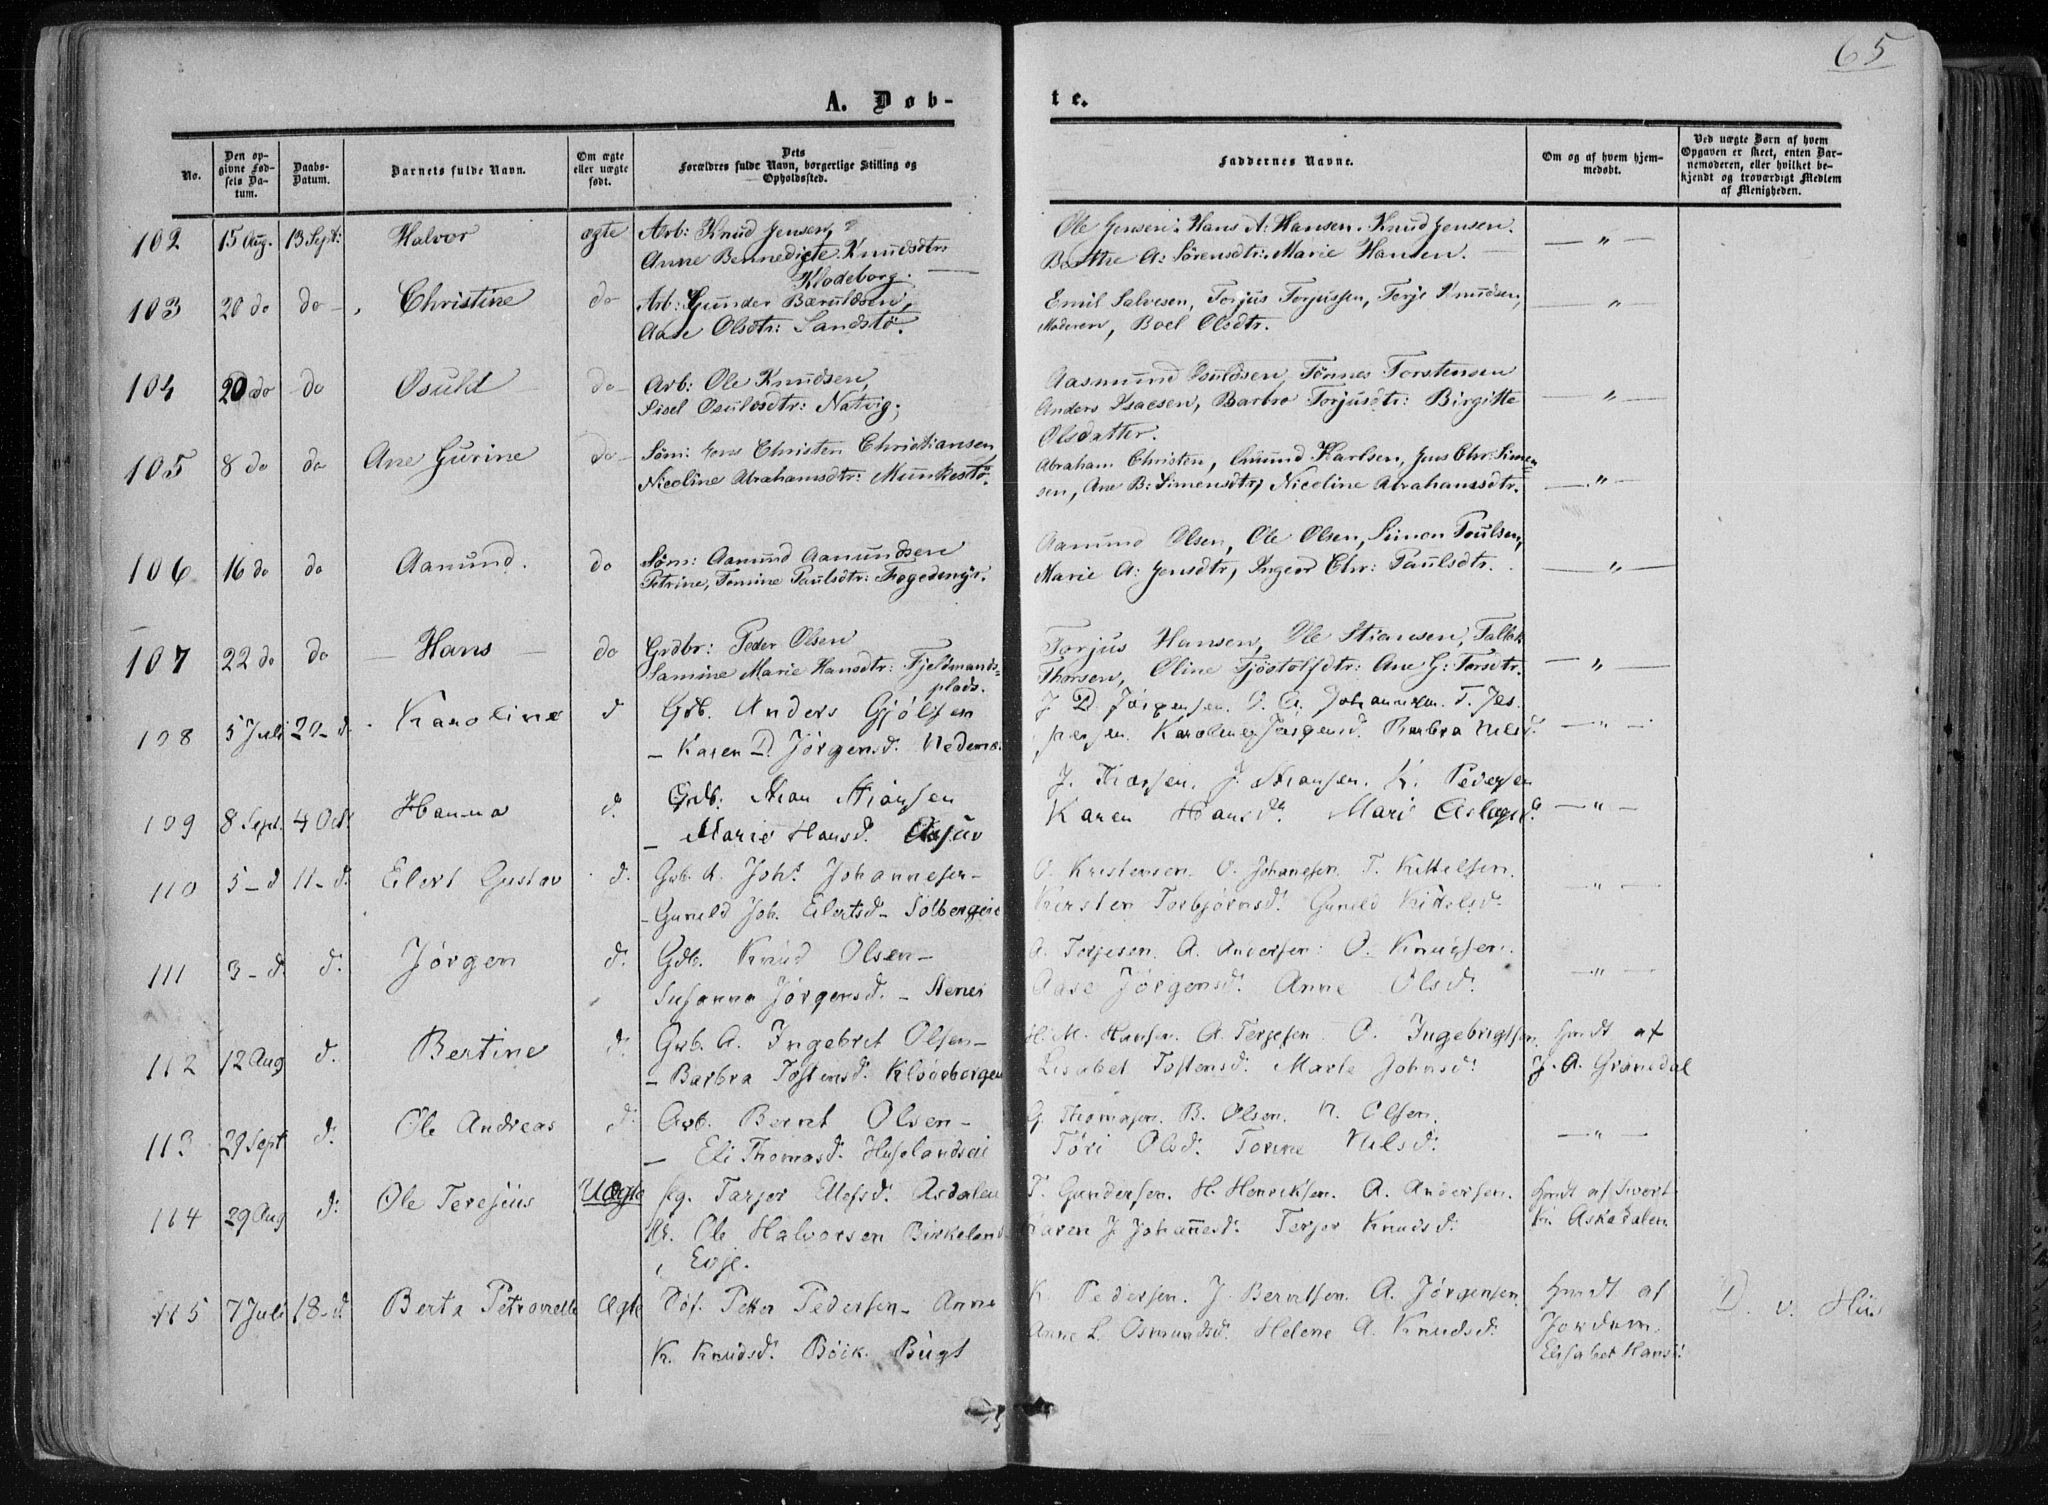 65
A. Døb-
te.
No.
Den op-
givne Fød-
sels Da-
tum.
Daabs-
Datum.
Barnets fulde Navn.
Om ægte
eller uægte
født.
Dets
Forældres fulde Navn, borgerlige Stilling og
Opholdssted.
Faddernes Navne.
Om og af hvem hjem-
medøbt.
Ved uægte Børn af hvem
Opgaven er skeet, enten Bar-
nemoderen, eller hvilket be-
kjendt og troværdigt Medlem
af Menigheden.
102 15 Aug. 13 Sept: Halvor ægte Arb: Knud Jensen,
Anne Bennedigte Knudsdtr:
Klodeborg.
Ole Jensen: Hans A: Hansen. Knud Jensen.
Berthe A: Sörensdtr: Marie Hansen. — " —
103 20 do do Christine do Arb: Gunder Bæruldsen,
Aase Olsdtr: Sandstö.
Emil Salvesen, Torjus Torjussen, Terje Knudsen,
Moderen, Boel Olsdtr. — " —
104 20 do do Osuld do Arb: Ole Knudsen,
Sisel Osuldsdtr: Natvig;
Aasmund Osuldsen, Tönnes Torstensen
Anders Isacsen, Barbro Torjusdtr: Birgitte
Olsdatter. — " —
105 8 do do Ane Gurine do Søm: Jens Christen Christiansen,
Nicoline Abrahamsdtr: Munkestö.
Abraham Christen, Amund Karlsen, Jens Chr: Simen
sen, Ane B: Simensdtr, Nicoline Abrahamsdtr. — " —
106 16 do do Aamund. do Søm: Aamund Aamundsen
Petrine, Tomine Paulsdtr:
Aamund Olsen, Ole Olsen, Simon Poulsen,
Marie A: Jensdtr, Ingeor Chr: Paulsdtr. — " —
107 22 do do Hans do Grdbr: Peder Olsen
Samine Marie Hansdtr: Fjeldmands=
plads.
Torjus Hansen, Ole Stiansen, Tallak
Thorsen, Oline Tjöstolfdtr: Ane G: Torsdtr. — " —
108 5 Juli 20-d. Karoline d Grb. Anders Gjölsen
— Karen D. Jørgensd. Nedenæs
J. D. Jørgensen. O. A. Johannesen. T. Jes
persen. Karoline Jørgensd. Barbra Nilsd. — " —
109 8 Sept. 4 Oct. Hanna d. Grdb: Stian Stiansen
— Marie Hansd.
J. Thorsen. J. Stiansen. K. Pedersen
Karen Hansd. Mari Aslagsd. — " —
110 5-d 11-d. Eilert Gustav d. Grb. A. Joh. Johannesen—
— Gunild Joh. Eilertsd— Solbergeie
O. Kristensen. O. Johanesen. T. Kittelsen.
Kirsten Torbjörnsd. Gunild Kittelsd. — " —
111 3-d. d. Jørgen d. Gdb. Knud Olsen—
Susanna Jørgensd. —
A. Torjesen. A. Andersen. O. Knudsen.
Aase Jørgensd. Anne Olsd. — " —
112 12 Aug d. Bertine d. Grb. A. Ingebret Olsen—
— Barbra Tostensd. Klødeborgeie
H. M. Hansen. A. Terjesen. O. Ingebrigtsen.
Lisabet Tostensd. Marte Johnsd. Hmdt af
J. A. Grønedal
113 29 Sept d. Ole Andreas d. Arb. Bernt Olsen—
— Eli Thomasd. Huslandseie
G. Thomasen. B. Olsen. N. Olsen.
Tóri Olsd. Torine Nilsd. — " —
114 29 Aug d. Ole Teresius Uægte Pg. Tarjer Olefsd. Asdalen
U. Ole Halvorsen Birkeland
, Evje.
T. Gundersen. H. Henriksen. A. Andersen.
Karen J Johannesd. Terjer Knudsd. Hmdt af
K. Askedalen.
115 7 Juli 18-d. Berta Petronelle Ægte Petter Pedersen— Anne
K. Knudsd. Böik. Bugt
K. Pedersen. J. Berntsen. A. Jørgensen.
Anne L. Osmundsd. Helene A. Knudsd. Hmdt af
Jordem.
Elisabet Hansd.